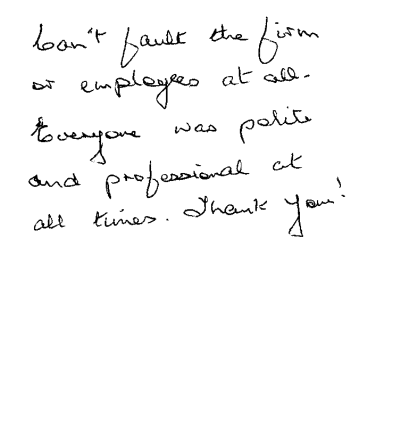 Can't fault the firm
or employees at all.
Everyone was polite
and professional at
all times. Thank you!